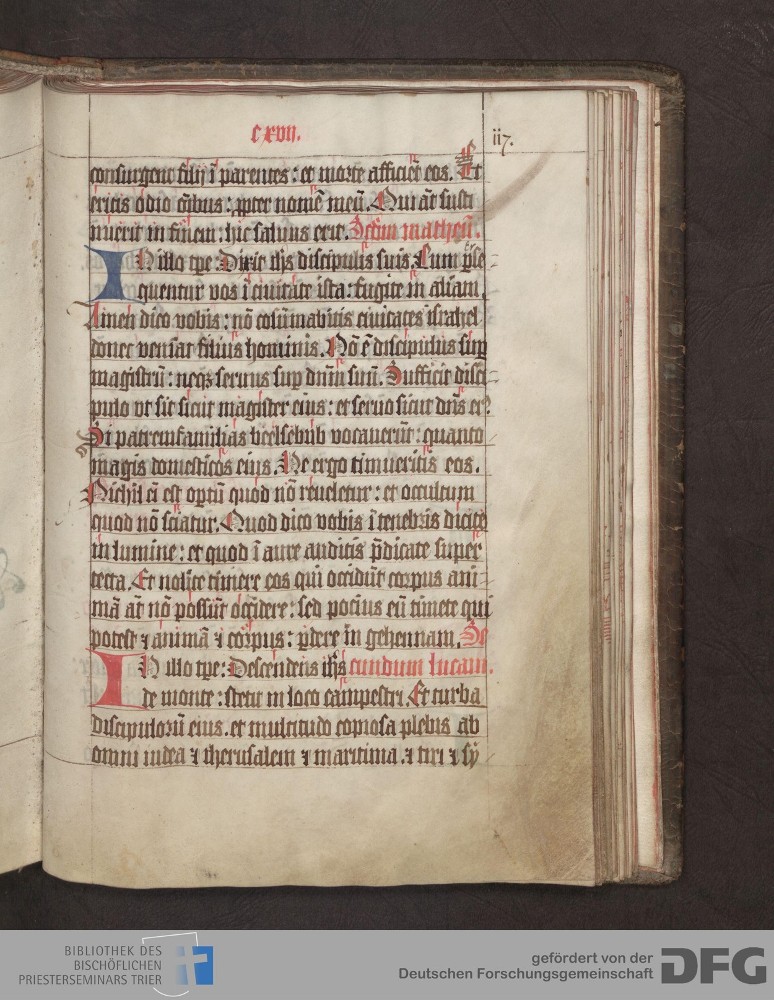 cxvij.
117.
consurgent filij ī parentes: et morte afficiēt eos. Et
eritis odio oībus: ꝓpter nomē meū. Qui aūt susti
nuerit in finem: hic saluus erit. Scdm matheū.
IN illo tpe: Dixit ihs discipulis suis. Cum ꝑse
quentur vos ī ciuitate ista: fugite in aliam.
Amen dico vobis: nō cōsūmabitis ciuitates israhel
donec veniat filius hominis. Nō ē discipulus sup
magistrū: neqꝫ seruus sup dnm suū. Sufficit disci
pulo vt sit sicut magister eius: et seruo sicut dns eiꝰ
Si patremfamilias beelsebub vocauerūt: quanto
magis domesticos eius. Ne ergo timueritis eos.
Nichil eī est optū quod nō reueletur: et occultum
quod nō sciatur. Quod dico vobis ī tenebris dicite
in lumine: et quod ī aure auditis p̄dicate super
tecta. Et nolite timere eos qui occidūt corpus ani
mā aūt nō possūt occidere: sed potius eū timete qui
potest ⁊ animā ⁊ corpus: ꝑdere in gehennam. Se
IN illo tpe: Descendens ihs cundum lucam.
de monte: stetit in loco campestri. Et turba
discipulorū eius. et multitudo copiosa plebis ab
omni iudea ⁊ iherusalem ⁊ maritima. ⁊ tiri ⁊ sy
BIBLIOTHEK DES
BISCHÖFLICHEN
PRIESTERSEMINARS TRIER
gefördert von der
Deutschen Forschungsgemeinschaft
DFG